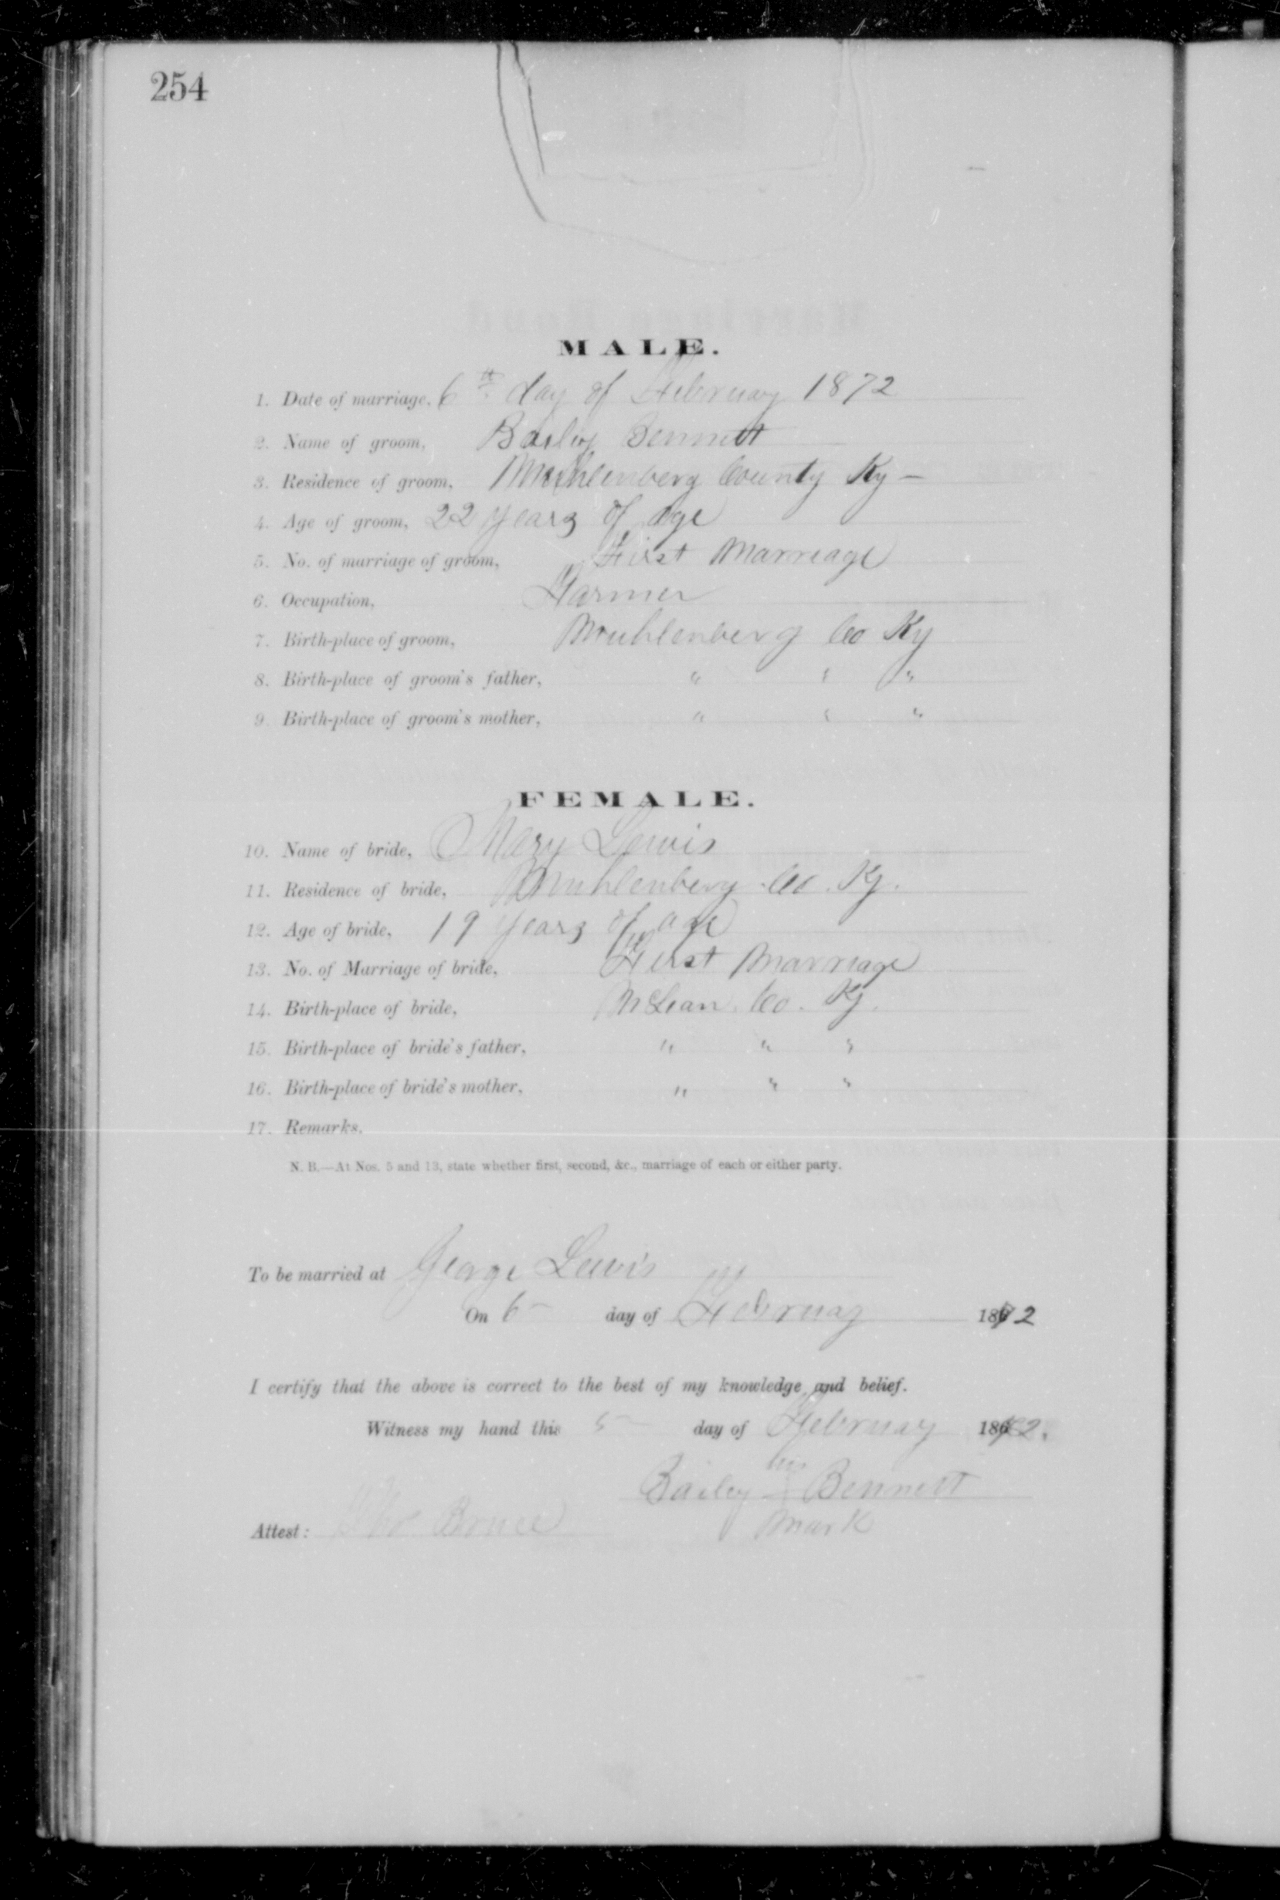 254
MALE.
1. Date of marriage, 6th day of February 1872
2. Name of groom, Bailey Bennett
3. Residence of groom, Muhlenberg County Ky —
4. Age of groom, 22 years of age
5. No. of marriage of groom, First Marriage
6. Occupation, Farmer
7. Birth-place of groom, Muhlenberg Co Ky
8. Birth-place of groom's father, " " "
9. Birth-place of groom's mother, " " "
FEMALE.
10. Name of bride, Mary Lewis
11. Residence of bride, Muhlenberg Co. Ky.
12. Age of bride, 19 years of age
13. No. of Marriage of bride, First Marriage
14. Birth-place of bride, McLean Co. Ky.
15. Birth-place of bride's father, " " "
16. Birth-place of bride's mother, " " "
17. Remarks,
N. B.—At Nos. 5 and 13, state whether first, second, &c., marriage of each or either party.
To be married at George Lewis
On 6 — day of February 1872
I certify that the above is correct to the best of my knowledge and belief.
Witness my hand this 5 — day of February 1872.
his
Bailey Bennett
Attest: Bruce mark